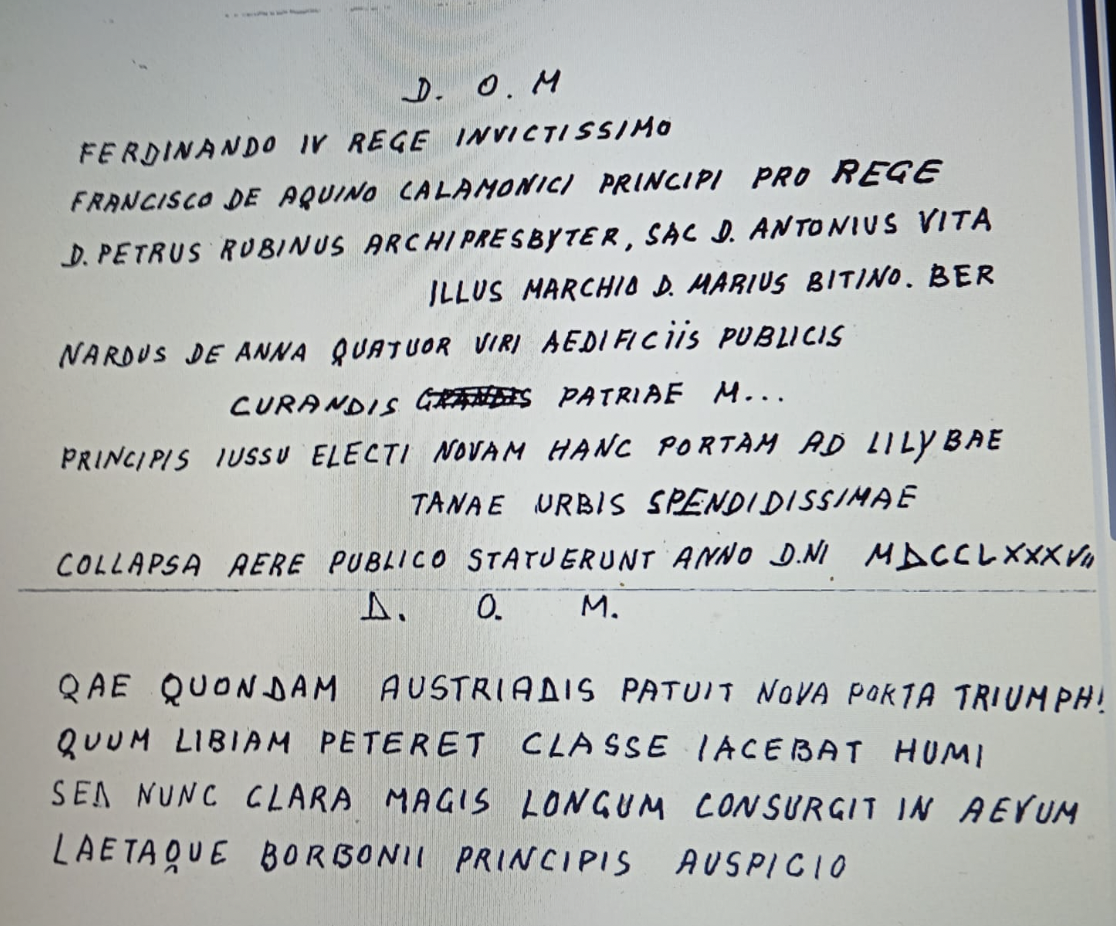 D. O. M
FERDINANDO IV REGE INVICTISSIMO
FRANCISCO DE AQUINO CALAMONICI PRINCIPI PRO REGE
D. PETRUS RUBINUS ARCHIPRESBYTER, SAC D. ANTONIUS VITA
ILLUS MARCHIO D. MARIUS BITINO. BER
NARDUS DE ANNA QUATUOR VIRI AEDIFICIIS PUBLICIS
CURANDIS PATRIAE M...
PRINCIPIS IUSSU ELECTI NOVAM HANC PORTAM AD LILYBAE
TANAE URBIS SPENDIDISSIMAE
COLLAPSA AERE PUBLICO STATUERUNT ANNO D.NI MDCCLXXXVII
D. O. M.
QAE QUONDAM AUSTRIADIS PATUIT NOVA PORTA TRIUMPHI
QUUM LIBIAM PETERET CLASSE IACEBAT HUMI
SED NUNC CLARA MAGIS LONGUM CONSURGIT IN AEVUM
LAETAQUE BORBONII PRINCIPIS AUSPICIO